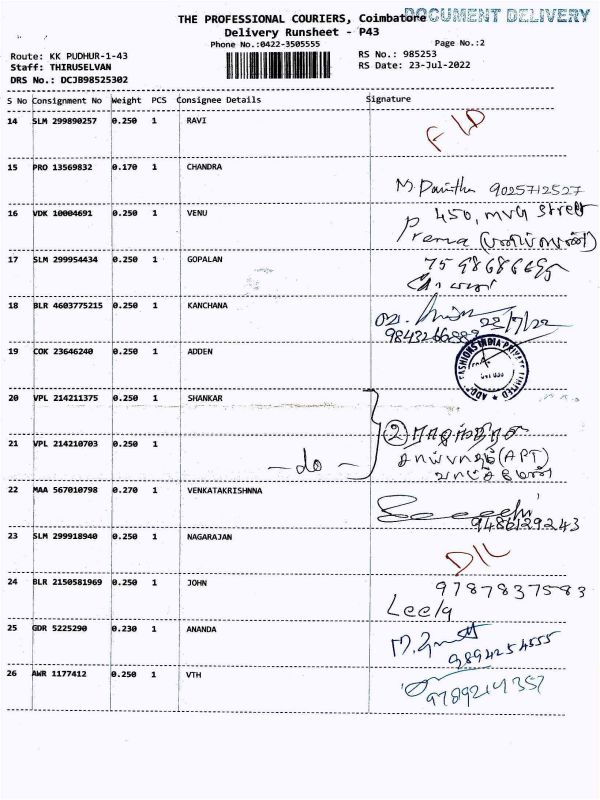 THE PROFESSIONAL COURIERS, Coimbatore
DOCUMENT DELIVERY
Delivery Runsheet - P43
Phone No.:0422-3505555
Page No.:2
Route: KK PUDHUR-1-43
RS No.: 985253
Staff: THIRUSELVAN
RS Date: 23-Jul-2022
DRS No.: DCJB98525302
S No Consignment No Weight PCS Consignee Details Signature
14 SLM 299890257 0.250 1 RAVI
15 PRO 13569832 0.170 1 CHANDRA
9025712527
16 VDK 10004691 0.250 1 VENU
450, mvg street
Prema
17 SLM 299954434 0.250 1 GOPALAN
18 BLR 4603775215 0.250 1 KANCHANA
23/7/22
19 COK 23646240 0.250 1 ADDEN
FASHIONS INDIA PRIVATE LIMITED
20 VPL 214211375 0.250 1 SHANKAR
2
21 VPL 214210703 0.250 1
- do -
(APT)
22 MAA 567010798 0.270 1 VENKATAKRISHNNA
9486129243
23 SLM 299918940 0.250 1 NAGARAJAN
D/L
24 BLR 2150581969 0.250 1 JOHN
9787837583
Leela
25 GDR 5225290 0.230 1 ANANDA
9894254555
26 AWR 1177412 0.250 1 VTH